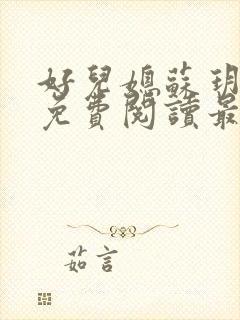 好兒媳蘇玥
免費閱讀最
茹言